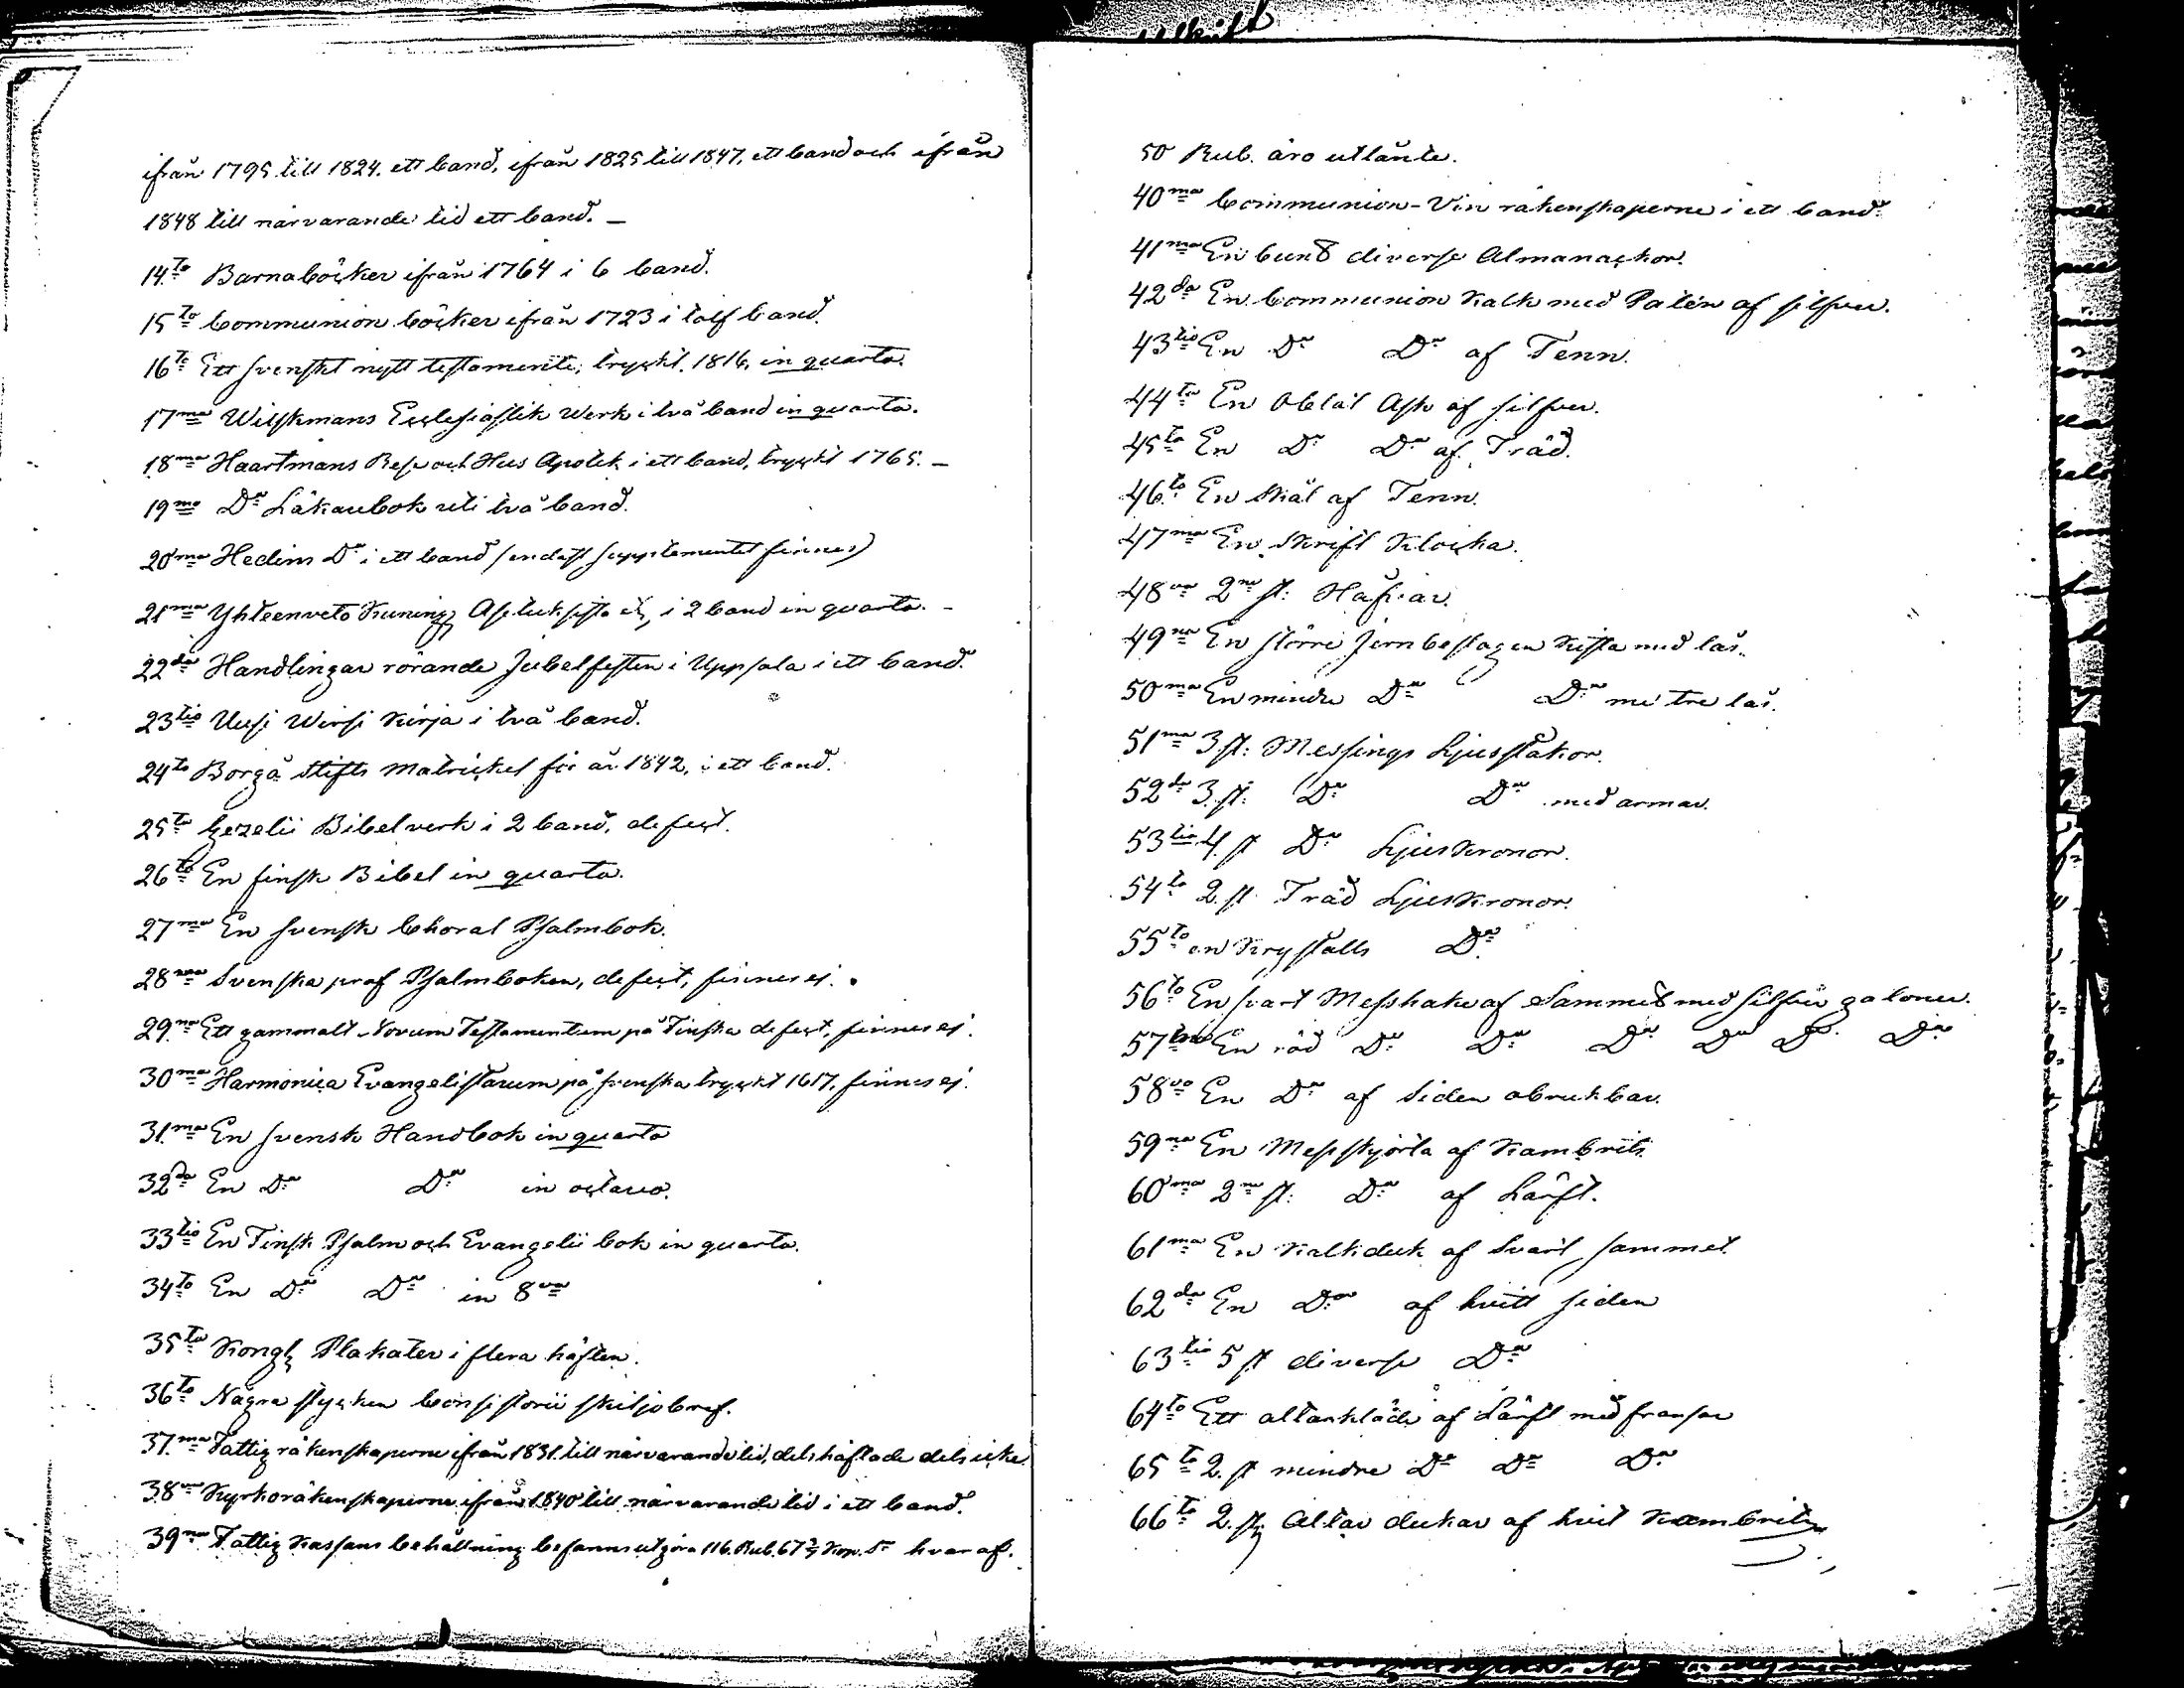 ifrån 1795 till 1824. ett band, ifrån 1825 till 1847. ett band och ifrån
1848 till närvarande tid ett band. –
14to Barnaböcker ifrån 1764 i 6 band.
15to Communion böcker ifrån 1723 i tolf band.
16to Ett svenskt nytt testamente, tryckt 1816, in quarto.
17ma Wilskmans Ecclesiastik werk i två band in quarto.
18ma Haartmans Rese och Hus Apotek i ett band, tryckt 1765. –
19no Do Läkarebok uti två band.
20ma Hedins Do i ett band (endast supplementet finnes)
21ma Yhteenveto Kuning Asetuksista etc, i 2 band in quarto. –
22do Handlingar rörande Jubelfesten i Uppsala i ett band.
23tio Uusi Wirsi Kirja i två band.
24to Borgå Stifts Matrickel för år 1842, i ett band.
25to Gezelii Bibelverk i 2 band, defect.
26to En finsk Bibel in quarto.
27ma En svensk Choral Psalmbok.
28va Svenska prof Psalmboken, defect, finnes ej.
29na Ett gammalt Novum Testamentum på Finska defect, finnes ej.
30ma Harmonica Evangelistarum på svenska tryckt 1617, finnes ej.
31ma En svensk Handbok in quarto
32do En Do Do in octavo.
33tio En Finsk Psalm och Evangelii bok in quarto.
34to En Do Do in 8vo
35to Kongl Plakater i flera häften.
36to Några stycken Consistorii skiljobref.
37ma Fattig räkenskaperne ifrån 1831. till närvarande tid, dels häftade dels icke.
38va Kyrkoräkenskaperne ifrån 1840 till närvarande tid i ett band.
39na Fattig Kassans behållning befanns utgöra 116. Rub. 67 2/7 Kop. Sr hvaraf.
50 Rub. äro utlånte.
40ma Communion-Vin räkenskaperne i ett band.
41ma En bunt diverse Almanackor.
42do En Communion Kalk med Patén af silfver.
43tio En Do Do af Tenn.
44to En Oblat Ask af silfver.
45to En Do Do af Träd.
46to En Skål af Tenn.
47ma En Skrift Klocka.
48va 2ne st: Håfvar.
49na En större Jernbeslagen Kista med lås.
50ma En mindre Do Do me tre lås.
51ma 3. st: Messings Ljusstakor.
52do 3. st: Do Do med armar.
53tio 4. st Do Ljuskronor.
54to 2. st. Träd Ljuskronor.
55to en Krystalls Do
56to En svart Messhake af Sammet med silfver galoner.
57 En röd Do Do Do Do Do Do
58vo En Do af siden obrukbar.
59na En Messkjorta af Kambrits
60ma 2ne st: Do af Lärft.
61ma En Kalkduk af svart sammet
62do En Do af hvitt siden
63tio 5 st diverse Do
64to Ett altarkläde af Lärft med fransar
65to 2. st mindre Do Do Do
66to 2. st Altar dukar af hvit Kambrits